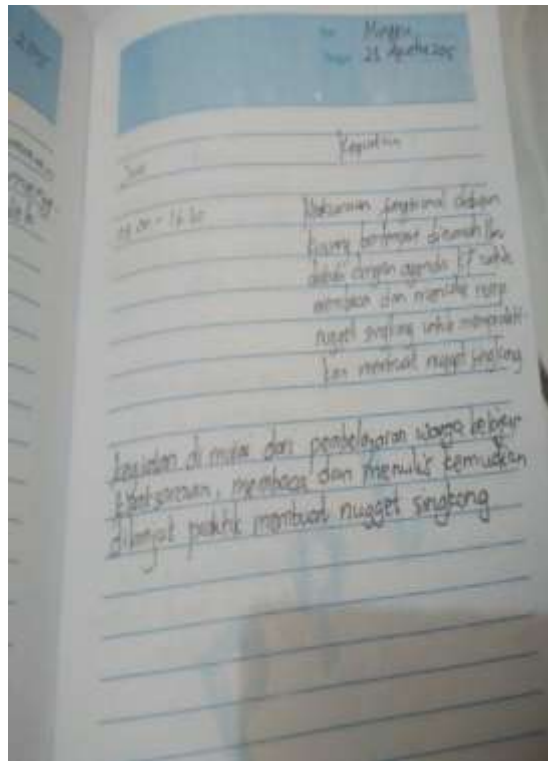 Minggu,
23 Agustus
Jam Kegiatan
Keaksaraan fungsional
bertempat dirumah Ibu
dengan agenda
membaca dan menulis resep
nugget singkong untuk
kan membuat nugget singkong
kegiatan di mulai dari pembelajaran warga belajar
keaksaraan, membaca dan menulis kemudian
dilanjut praktik membuat nugget singkong